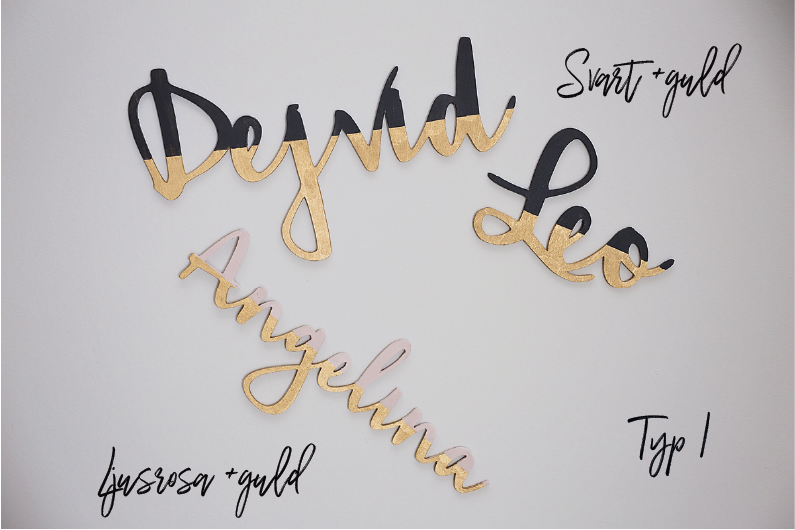 Dejvid
Svart + guld
Leo
Angelina
Typ 1
Ljusrosa + guld